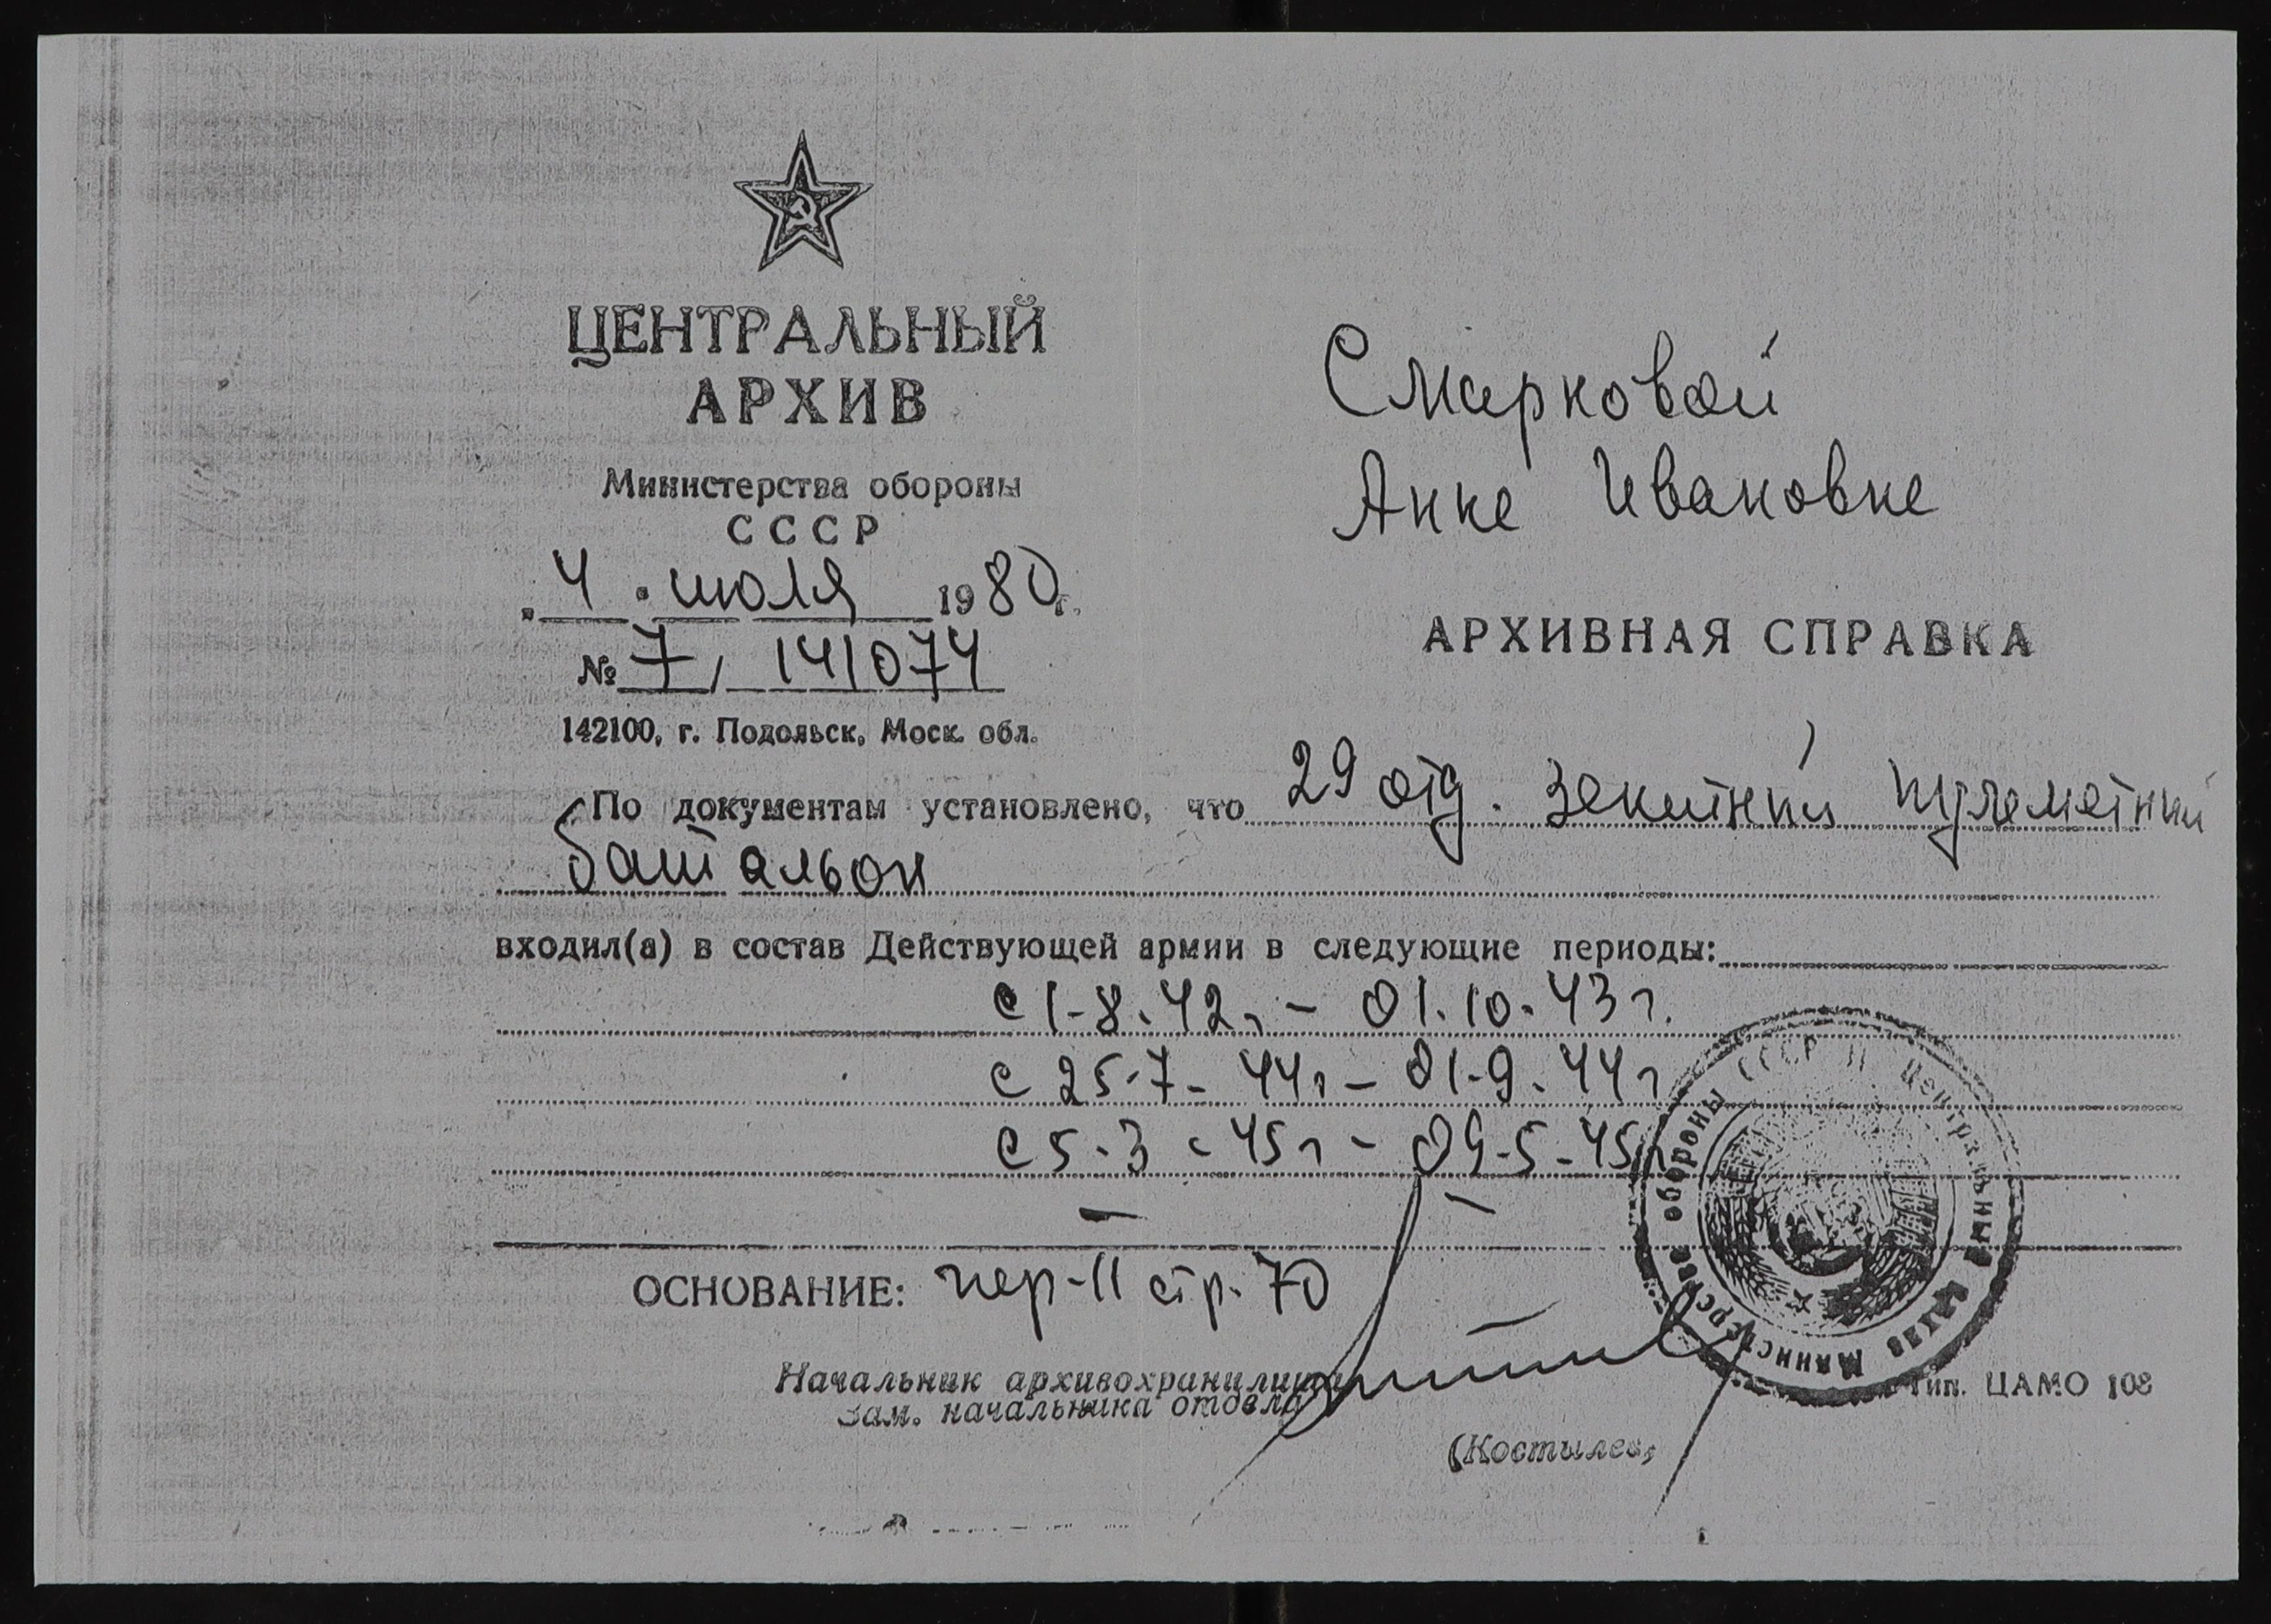 ЦЕНТРАЛЬНЫЙ
АРХИВ
Министерства обороны
СССР
„4" июля 1980 г.
№ 7/ 141074
142100, г. Подольск, Моск. обл.
Смарковой
Анне Ивановне
АРХИВНАЯ СПРАВКА
По документам установлено, что 29 отд. зенитный пулеметный
батальон
входил(а) в состав Действующей армии в следующие периоды:
с 1-8.42г. - 01.10.43г.
с 25.7-44г - 01-9.44г
с 5-3-45г - 09-5-45г
ОСНОВАНИЕ: пер-11 стр. 70
Начальник архивохранилища
Зам. начальника отдела
(Костылев)
Тип. ЦАМО 108
Министерство обороны СССР Центральный Архив